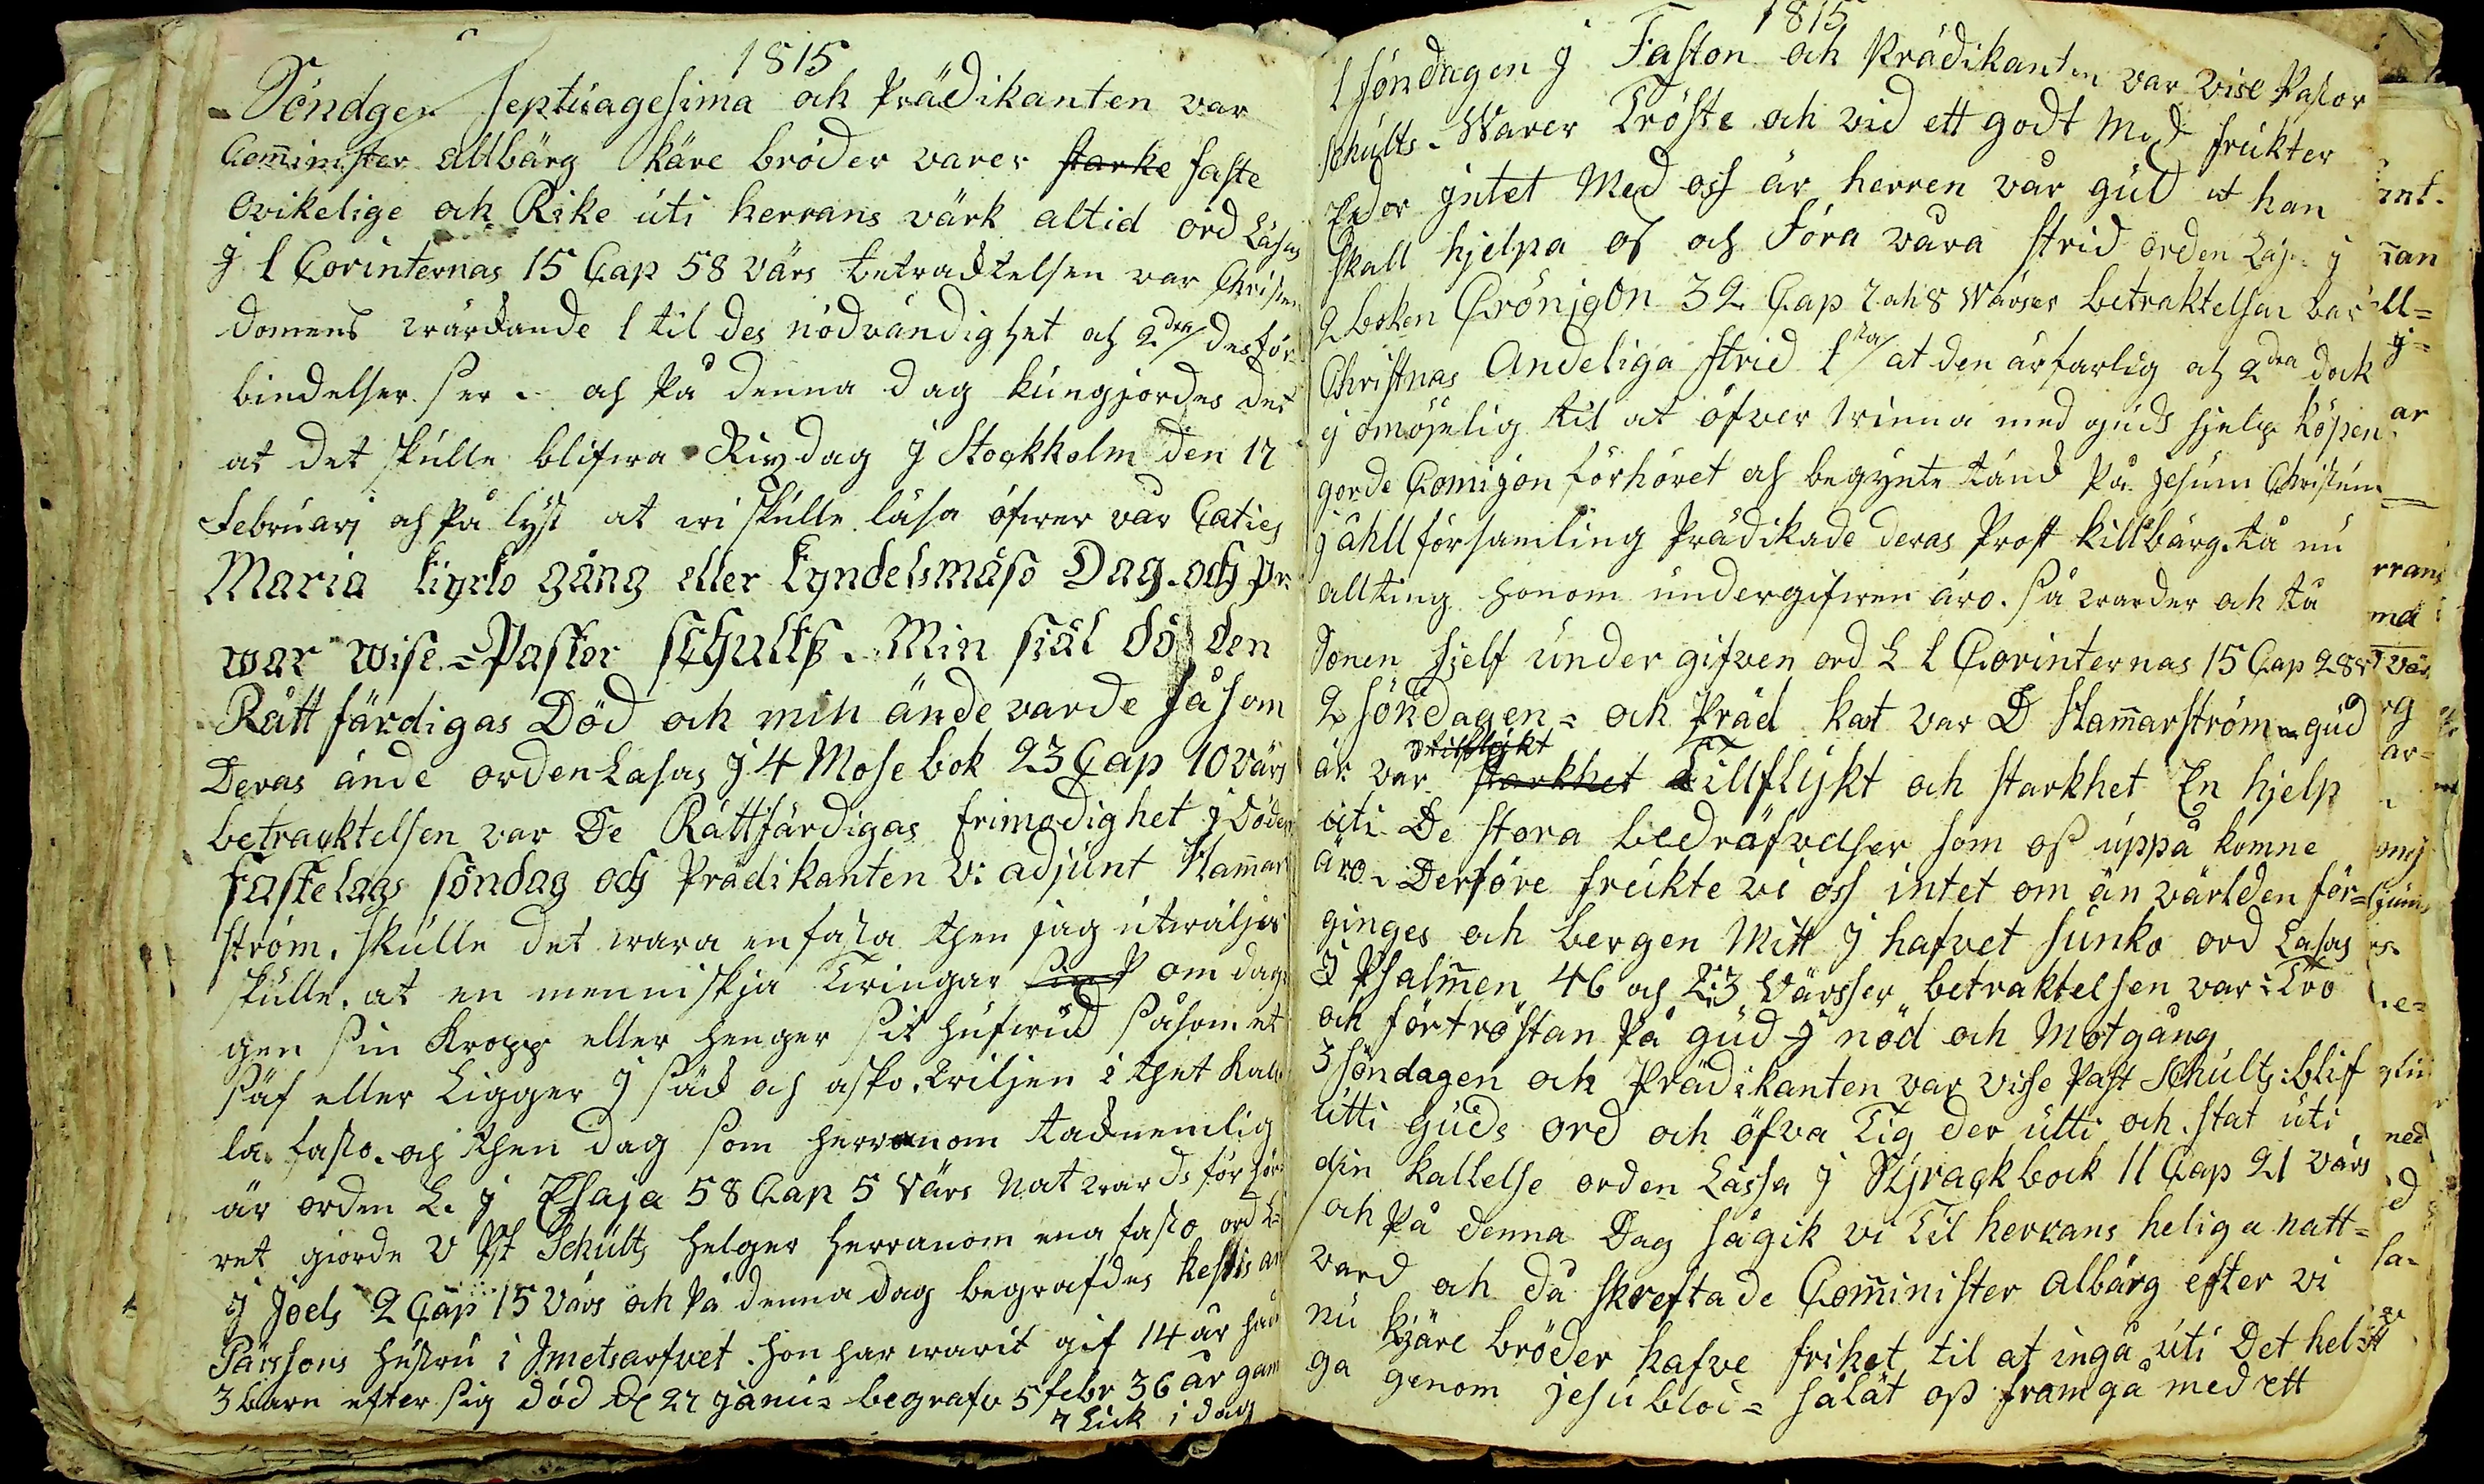 1815
Söndgen Septuagesima och Prädikanten var
Com̄inister allbärg Käre bröder varer starke faste
Ovikelige och Rike uti herrans värk altid ord Läsas
j 1 Corinternas 15 Cap 58 värs betracktelsen var Christen
domens wärckande 1 til des nödvändighet och 2dra des för
bindelser ser. och På denna dag kungjordes det
at det skulle blifwa Rixdag j Stockholm den 17
Februarj och På lyst at wi skulle läsa öfwer vår Caties
Maria kyrko gång eller kyndelsmäso Dag. och pr
war wise=Pastor schults. Min siäl dö den
Rätt färdigas Död och min ände varde såsom
Deras ände orden Läsas j 4 Mose bok 23 Cap 10 värs
betracktelsen var De Rättfärdigas frimodighet j Döden
Fastelags söndag och Prädikanten v: adjunt Ham̄ar
ström. skulle det wara en fasta then jag utwälja
skulle. at en menniskja twingar om dag
gen sin Kropp eller henger sit hufwud såsom et
säf eller Ligger j säck och asko. wiljen i thet kal
la fasto. och then dag som herranom tacknemlig
är orden L. j Esaja 58 Cap 5 värs Natwards förhör
ret giorde v Pst Schults helger herranom ena fasto ord L=
j Joels 2 Cap 15 värs och På denna dag begrafdes
Pärssons hustru i Jmetsarfvet. hon har warit gif 14 år
3 barn efter sig död d 27 janu= begrafv 5 febr 36 år gam
7 Lick i dag
1815
1 söndagen j Faston och Prädikanten var vise Pastor
Schults. Warer Tröste och vid ett godt Mod frukter
Eder jntet Med oss är herren vår gud at han
skall hjelpa oss och föra våra strid orden Läs j
2 boken Crönjcon 32 Cap 7 och 8 Wärser betraktelsen var
Christnas Andeliga strid 1sta at den är farlig och 2dra dock
j omöjelig til at öfver winna med guds hjelp
gorde Comijon förhöret och begynte tänck På jesum Christum
j församling Prädikade deras Prost killbärg. tå nu
allting honom undergifwen äro. så warder och tå
Sonen sjelf under gifven ord L 1 Corinternas 15 Cap 28
2 söndagen= och Präd kat var D Ham̄arström= gud
tillflykt
är var starkhet Tillflykt och starkhet En hjelp
uti De stora bedräfvelser som oss uppå komne
äro. Derföre frukte vi oss intet om än världen för=
ginges och bergen Mitt j hafvet sunko ord Läsas
j Psalmen 46 och 2:3 Värsser betraktelsen var: Tro
och förtröstan På gud j nöd och Motgång
3 söndagen och Prädikanten var visse Past Schults: blif
utti Guds ord och öfva Tig der utti och stat uti
din kallelse orden Lässa j Syrack bock 11 Cap 21 värs
och På denna Dag så gik vi Til herrans heliga natt=
vard och då skrefta de Com̄inister albärg efter vi
nu kjäre bröder hafve frihet til at ingå uti Det heli
ga genom jesu blod= så lät oss framgå med ett